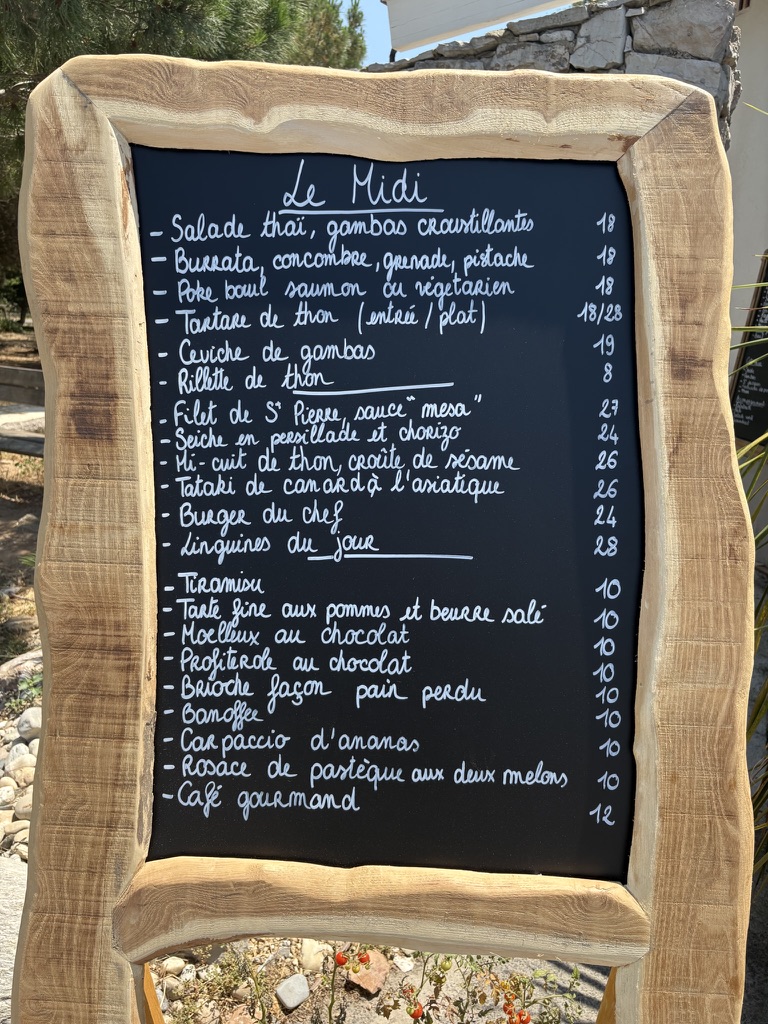 Le Midi
- Salade thaï, gambas croustillantes 18
- Burrata, concombre, grenade, pistache 18
- Poke bowl saumon ou végétarien 18
- Tartare de thon (entrée / plat) 18/28
- Ceviche de gambas 19
- Rillette de thon 8
- Filet de St Pierre, sauce "mesa" 27
- Seiche en persillade et chorizo 24
- Mi-cuit de thon, croûte de sésame 26
- Tataki de canard à l'asiatique 26
- Burger du chef 24
- Linguines du jour 28
- Tiramisu 10
- Tarte fine aux pommes et beurre salé 10
- Moelleux au chocolat 10
- Profiterole au chocolat 10
- Brioche façon pain perdu 10
- Banoffee 10
- Carpaccio d'ananas 10
- Rosace de pastèque aux deux melons 10
- Café gourmand 12